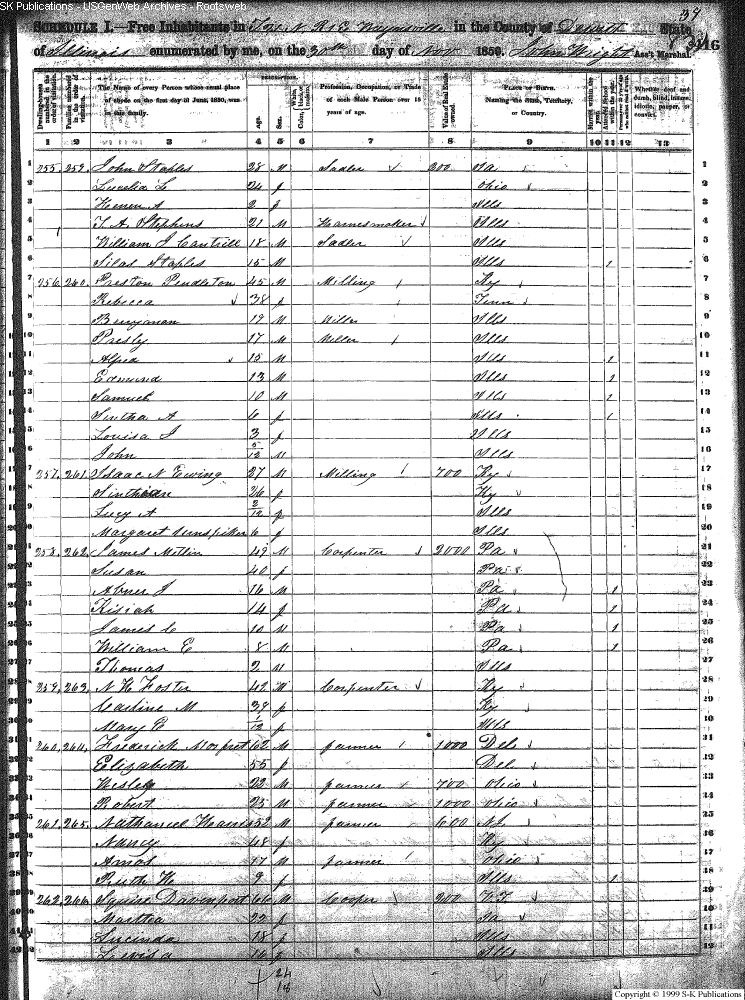 SK Publications - USGenWeb Archives - Rootsweb
34
SCHEDULE I.—Free Inhabitants in Waynesville in the County of Dewitt State
of Illinois enumerated by me, on the 30th day of Nov 1850. John Wright Ass't Marshal. 116
DESCRIPTION.
Dwelling-houses numbered in the order of visitation.
Families numbered in the order of visitation.
The Name of every Person whose usual place of abode on the first day of June, 1850, was in this family.
Age.
Sex.
Color, White, black, or mulatto.
Profession, Occupation, or Trade of each Male Person over 15 years of age.
Value of Real Estate owned.
PLACE OF BIRTH. Naming the State, Territory, or Country.
Married within the year.
Attended School within the year.
Whether deaf and dumb, blind, insane, idiotic, pauper, or convict.
1 2 3 4 5 6 7 8 9 10 11 12 13
1 255 259 John Staples 28 M Sadler 200 Pa 1
2 Lucelia L 24 f Ohio 2
3 2 f Ills 3
4 Stephens 21 M Harnesmaker Ills 4
5 William J Cantrill 18 M Sadler Ills 5
6 Silas Staples 15 M Ills 1 6
7 256 260 Preston Pendleton 45 M Milling Ky 7
8 Rebecca 38 f Tenn 8
9 Berryman 19 M Miller Ills 9
10 Presly 17 M Miller Ills 10
11 Alfred 15 M Ills 1 11
12 Edmund 13 M Ills 1 12
13 Samuel 10 M Ills 1 13
14 Sintha A 6 f Ills 1 14
15 Louisa J 3 f Ills 15
16 John 5/12 M Ills 16
17 257 261 Isaac N Ewing 27 M Milling 700 Ky 17
18 26 f Ky 18
19 Lucy A 2/12 f Ills 19
20 Margaret 6 f Ills 20
21 258 262 James Metlin 49 M Carpenter 2000 Pa 21
22 Susan 40 f Pa 22
23 Abner J 16 M Pa 1 23
24 Kisiah 14 f Pa 1 24
25 James C 10 M Pa 1 25
26 William E 8 M Pa 1 26
27 Thomas 2 M Ills 27
28 259 263 N H Foster 42 M Carpenter Ky 28
29 Carline M 38 f Ky 29
30 Mary E 1/12 f Ills 30
31 260 264 Frederick 62 M farmer 1000 Del 31
32 Elizabeth 55 f Del 32
33 Wesley 22 M farmer 700 Ohio 33
34 Robert 25 M farmer 1000 Ohio 34
35 261 265 Nathaniel Harris 52 M farmer 600 35
36 Nancy 48 f Ky 36
37 Amos 17 M farmer Ohio 37
38 Ruth W 9 f Ills 1 38
39 262 266 Squire Davenport 60 M Cooper 200 39
40 Martha 22 f Pa 40
41 Lucinda 18 f Ills 41
42 Lewisa 16 f Ills 42
24
18
Copyright © 1999 S-K Publications